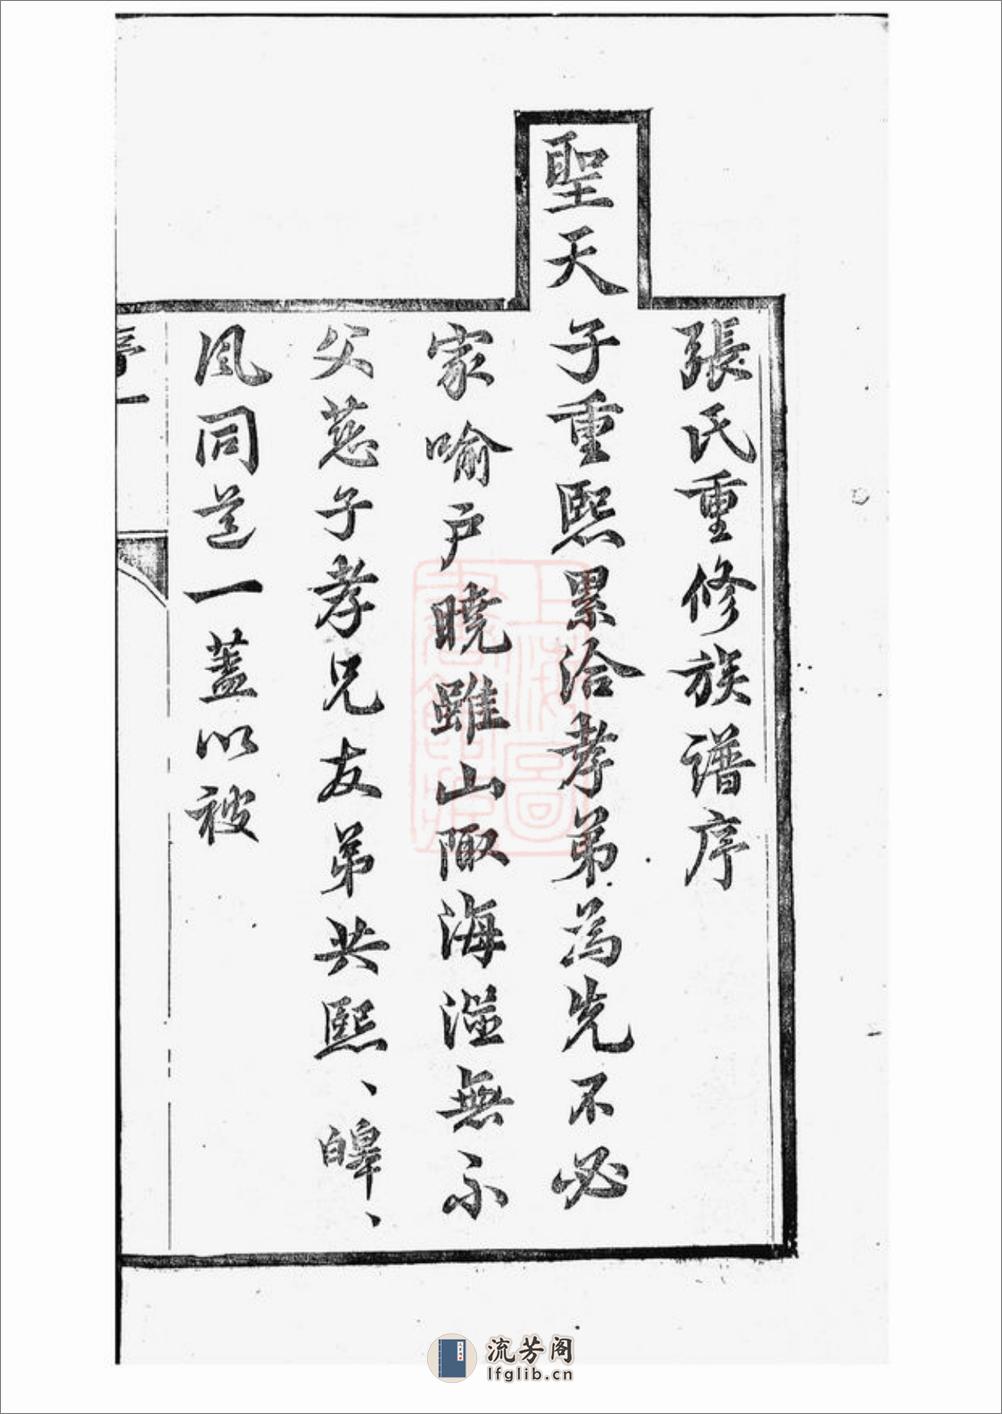 張氏重修族譜序
聖天子重熙累洽孝弟為先不必
家喻户曉雖山陬海澨無不
父慈子孝兄友弟共熙、皞、
風同道一蓋以被
序一
上海圖書館藏
流芳阁
lfglib.cn